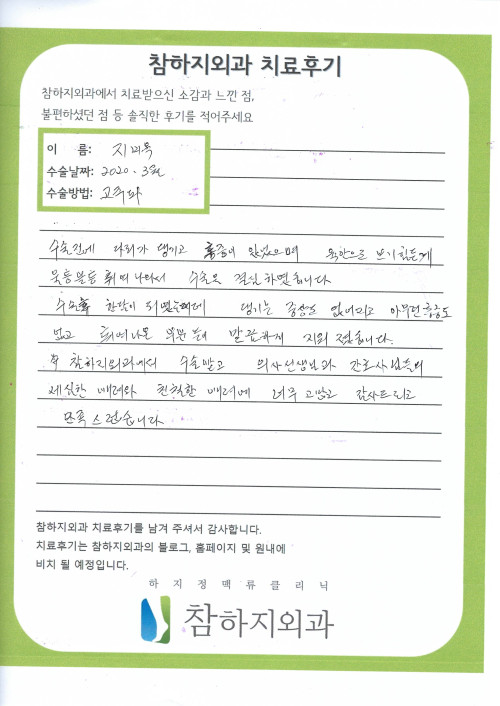 참하지외과 치료후기
참하지외과에서 치료받으신 소감과 느낀 점,
불편하셨던 점 등 솔직한 후기를 적어주세요
이 름: 지
수술날짜: 2020. 3월
수술방법: 고주파
수술전에 다리가 댕기고 통증이 있었으며 육안으로 보기 힘들게
울퉁불퉁 튀여 나와서 수술을 결심하였습니다
수술후 한달이 되였는데 댕기는 증상도 없어지고 아무런 통증도
없고 튀여나온 부분들이 말끔하게 지워 졌습니다.
참하지외과에서 수술받고 의사선생님과 간호사님들의
세심한 배려와 친절한 배려에 너무 고맙고 감사드리고
만족 스럽습니다
참하지외과 치료후기를 남겨 주셔서 감사합니다.
치료후기는 참하지외과의 블로그, 홈페이지 및 원내에
비치 될 예정입니다.
하지정맥류클리닉
참하지외과